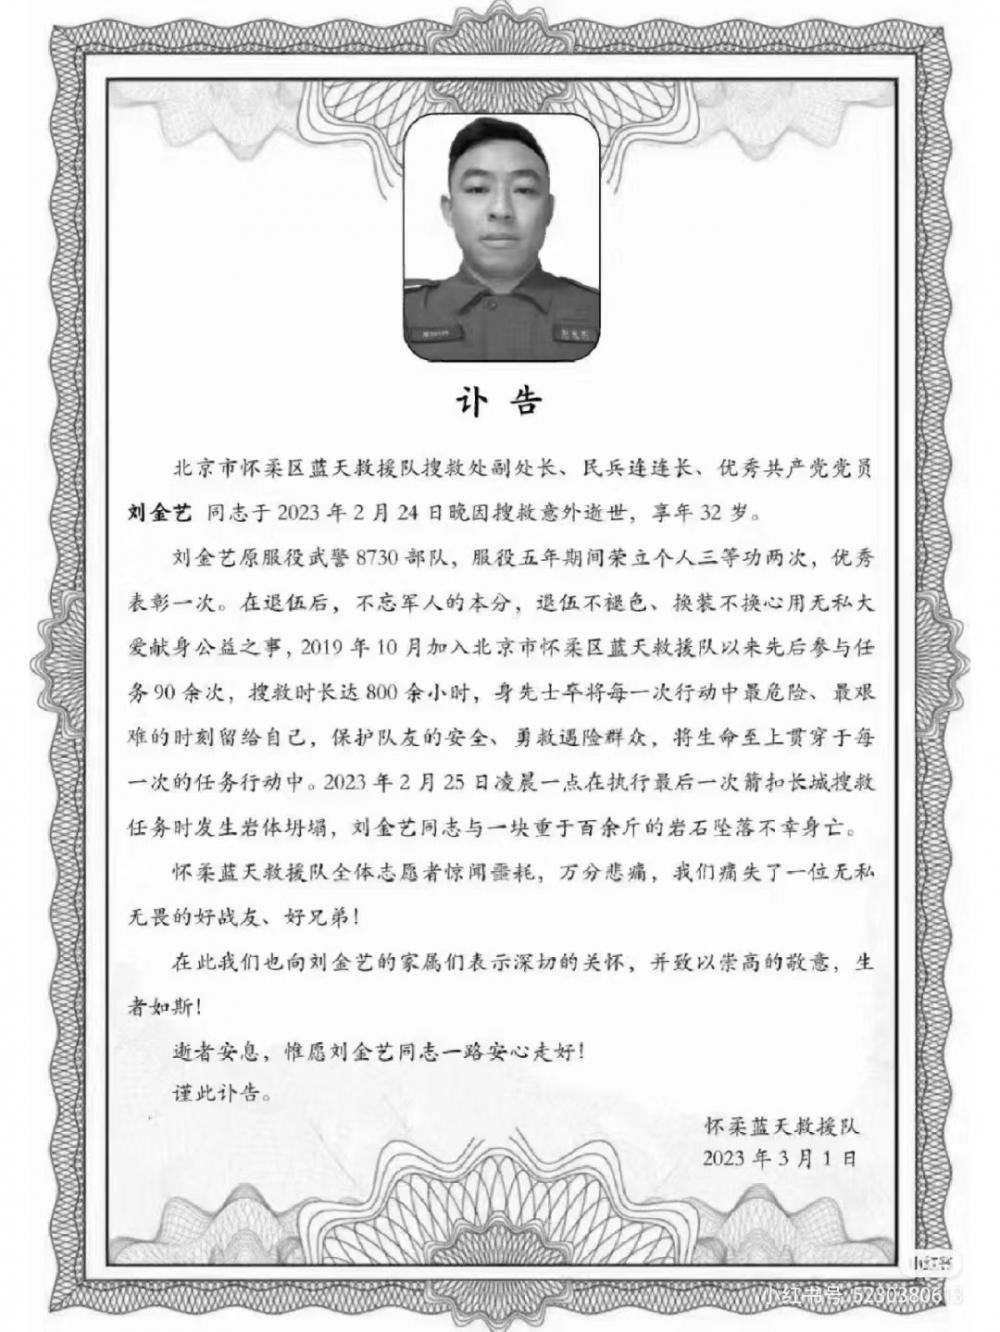 讣 告
北京市怀柔区蓝天救援队搜救处副处长、民兵连连长、优秀共产党党员
刘金艺 同志于 2023 年 2 月 24 日晚因搜救意外逝世，享年 32 岁。
刘金艺原服役武警 8730 部队，服役五年期间荣立个人三等功两次，优秀
表彰一次。在退伍后，不忘军人的本分，退伍不褪色、换装不换心用无私大
爱献身公益之事，2019 年 10 月加入北京市怀柔区蓝天救援队以来先后参与任
务 90 余次，搜救时长达 800 余小时，身先士卒将每一次行动中最危险、最艰
难的时刻留给自己，保护队友的安全、勇救遇险群众，将生命至上贯穿于每
一次的任务行动中。2023 年 2 月 25 日凌晨一点在执行最后一次箭扣长城搜救
任务时发生岩体坍塌，刘金艺同志与一块重于百余斤的岩石坠落不幸身亡。
怀柔蓝天救援队全体志愿者惊闻噩耗，万分悲痛，我们痛失了一位无私
无畏的好战友、好兄弟！
在此我们也向刘金艺的家属们表示深切的关怀，并致以崇高的敬意，生
者如斯！
逝者安息，惟愿刘金艺同志一路安心走好！
谨此讣告。
怀柔蓝天救援队
2023 年 3 月 1 日
小红书
小红书号: 5230380613